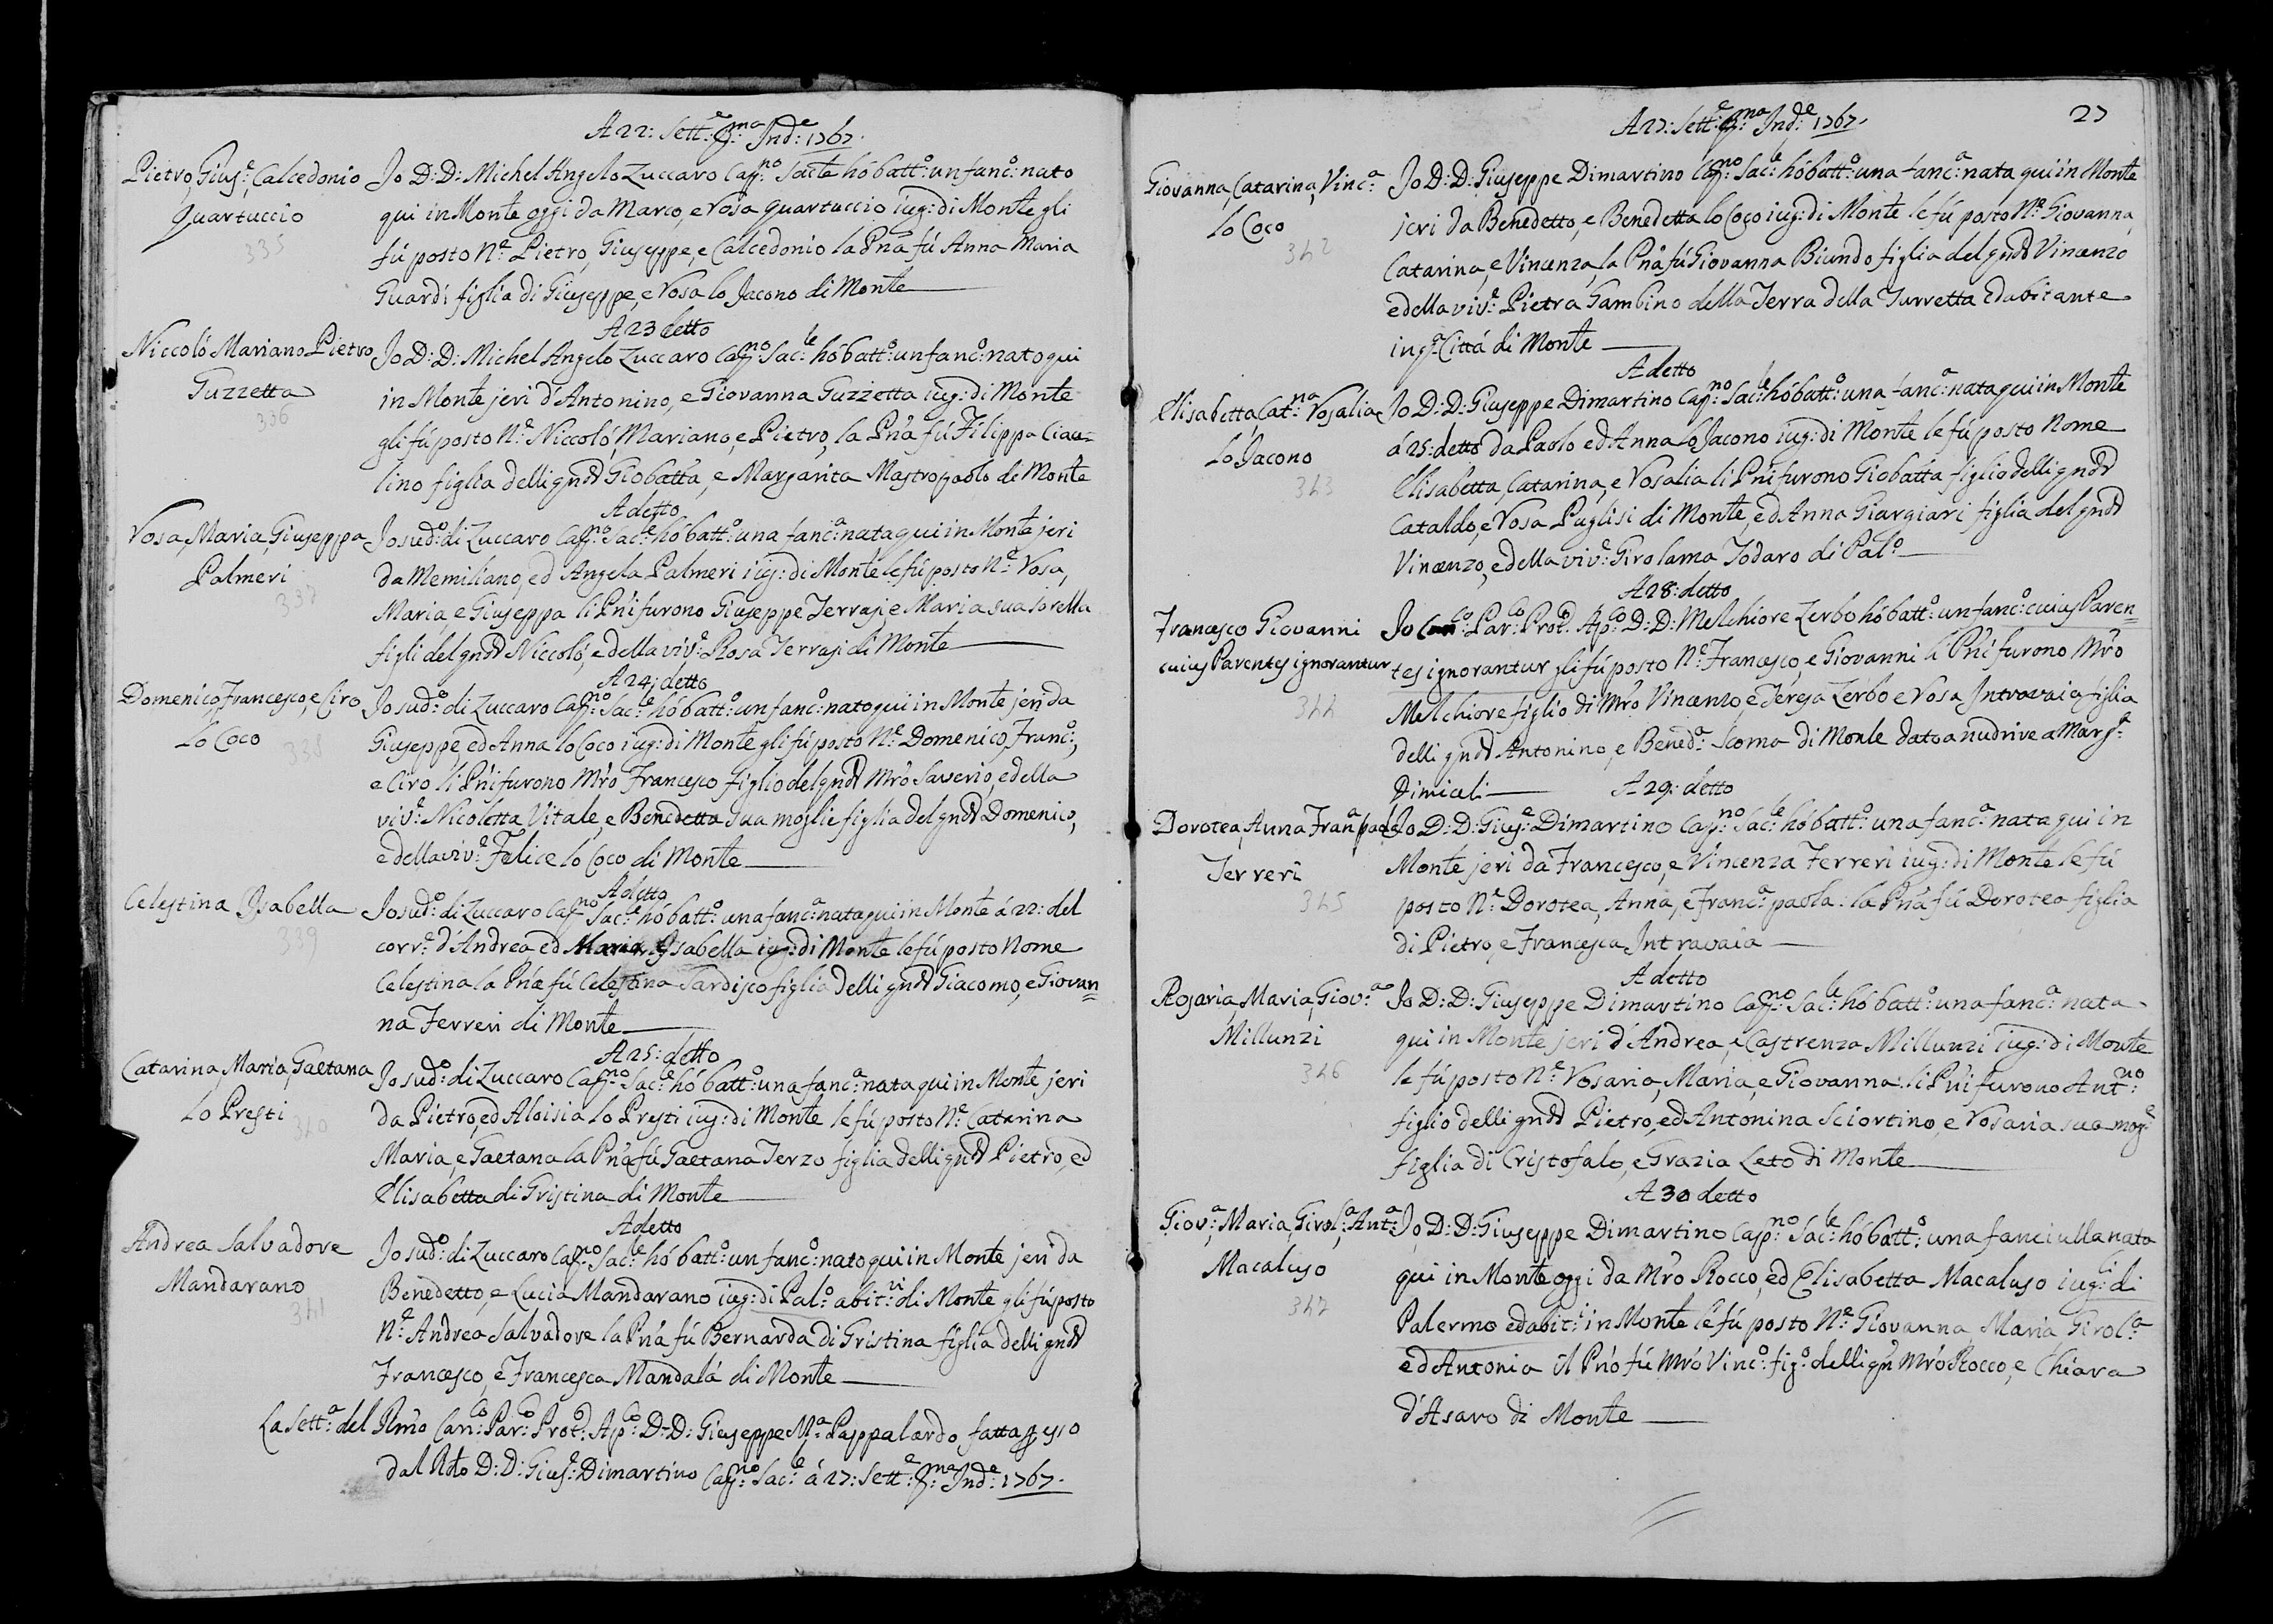 A 22: Sett:e p:ma Ind:e 1767.
Pietro, Gius:e, Calcedonio
Quartuccio
335
Io D: D: Michel Angelo Zuccaro Capp:no Sac:le hó batt:o un fanc:o nato
qui in Monte oggi da Marco, e Rosa Quartuccio iug: di Monte gli
fú posto N:e Pietro, Giuseppe, e Calcedonio la Pńa fú Anna Maria
Guardí figlia di Giuseppe, e Rosa lo Jacono di Monte
A 23 detto
Niccoló Mariano Pietro
Guzzetta
336
Io D: D: Michel Angelo Zuccaro Capp:no Sac:le hó batt:o un fanc:o nato qui
in Monte jeri d'Antonino, e Giovanna Guzzetta iug: di Monte
gli fú posto N:e Niccoló, Mariano, e Pietro, la Pńa fú Filippa Ciau=
lino figlia delli qndd Giobatta, e Margarita Mastropaolo di Monte
A detto
Rosa, Maria, Giuseppa
Palmeri
337
Io sud:o di Zuccaro Capp:no Sac:le hó batt:o una fanc:a nata qui in Monte jeri
da Memiliano, ed Angela Palmeri iug: di Monte le fú posto N:e Rosa,
Maria, e Giuseppa li Pńi furono Giuseppe Terrasi, e Maria sua sorella
figli del qndd Niccoló, e della viv:e Rosa Terrasi di Monte
A 24: detto
Domenico, Francesco, e Ciro
Lo Coco
338
Io sud:o di Zuccaro Capp:no Sac:le hó batt:o un fanc:o nato qui in Monte jeri da
Giuseppe, ed Anna lo Coco iug: di Monte gli fú posto N:e Domenico, Franc:o,
e Ciro li Pńi furono Mro Francesco figlio del qndd Mro Saverio, e della
viv:e Nicoletta Vitale, e Benedetta sua moglie figlia del qndd Domenico,
e della viv:e Felice lo Coco di Monte
A detto
Celestina Isabella
339
Io sud:o di Zuccaro Capp:no Sac:le hó batt:o una fanc:a nata qui in Monte á 22: del
corr:e d'Andrea, ed Maria Isabella iug: di Monte le fú posto Nome
Celestina la Pńa fú Celestina Sardisco figlia delli qndd Giacomo, e Giovan=
na Ferreri di Monte
A 25: detto
Catarina, Maria, Gaetana
Lo Presti
340
Io sud:o di Zuccaro Capp:no Sac:le hó batt:o una fanc:a nata qui in Monte jeri
da Pietro, ed Aloisia lo Presti iug: di Monte le fú posto N:e Catarina
Maria, e Gaetana la Pńa fú Gaetana Terzo figlia delli qndd Pietro, ed
Elisabetta di Gristina di Monte
A detto
Andrea Salvadore
Mandarano
341
Io sud:o di Zuccaro Capp:no Sac:le hó batt:o un fanc:o nato qui in Monte jeri da
Benedetto, e Lucia Mandarano iug: di Pal:o abit:vi di Monte gli fú posto
N:e Andrea Salvadore la Pńa fú Bernarda di Gristina figlia delli qndd
Francesco, e Francesca Mandalá di Monte
La Sett:a del Illmo Can:co Par:co Prot:o Ap:co D: D: Giuseppe M:a Pappalardo fatta
dal D: D: Gius:e Dimartino Capp:no Sac:le á 27: Sett:e p:ma Ind:e 1767.
A 27: Sett:e p:ma Ind:e 1767.
27
Giovanna, Catarina, Vinc:a
Lo Coco
342
Io D: D: Giuseppe Dimartino Capp:no Sac:le hó batt:o una fanc:a nata qui in Monte
jeri da Benedetto, e Benedetta lo Coco iug: di Monte le fú posto N:e Giovanna,
Catarina, e Vincenza, la Pńa fú Giovanna Biundo figlia del qndd Vincenzo
e della viv:e Pietra Gambino della Terra della Turretta ed abitante
in q:a Cittá di Monte
A detto
Elisabetta, Cat:na Rosalia
Lo Jacono
343
Io D: D: Giuseppe Dimartino Capp:no Sac:le hó batt:o una fanc:a nata qui in Monte
á 25: detto da Paolo ed Anna lo Jacono iug: di Monte le fú posto Nome
Elisabetta, Catarina, e Rosalia li Pńi furono Giobatta figlio delli qndd
Cataldo, e Rosa Puglisi di Monte, ed Anna Giargiari figlia del qndd
Vincenzo, e della viv:e Girolama Todaro di Pal:o
A 28: detto
Francesco Giovanni
cuius Parentes ignorantur
344
Io Can:co Par:co Prot:o Ap:co D: D: Melchiore Zerbo hó batt:o un fanc:o cuius Paren=
tes ignorantur gli fú posto N:e Francesco, e Giovanni li Pńi furono Mro
Melchiore figlio di Mro Vincenzo, e Teresa Zerbo e Rosa Intravaia figlia
delli qndd Antonino, e Bened:a Scoma di Monle dato a nudrire a Marg:a
Dimiceli
A 29: detto
Dorotea, Anna Fran:a paola
Ferreri
345
Io D: D: Gius:e Dimartino Capp:no Sac:le hó batt:o una fanc:a nata qui in
Monte jeri da Francesco, e Vincenza Ferreri iug: di Monte le fú
posto N:e Dorotea, Anna, e franc:a paola: la Pńa fú Dorotea figlia
di Pietro, e Francesca Intravaia
A detto
Rosaria, Maria, Giov:a
Millunzi
346
Io D: D: Giuseppe Dimartino Capp:no Sac:le hó batt:o una fanc:a nata
qui in Monte jeri d'Andrea, e Castrenza Millunzi iug: di Monte
le fú posto N:e Rosaria, Maria, e Giovanna: li Pńi furono Ant:no
figlio delli qndd Pietro, ed Antonina Sciortino, e Rosaria sua mog:e
figlia di Cristofalo, e Grazia Leto di Monte
A 30 detto
Giov:a, Maria, Girol:a, Ant:a
Macaluso
347
Io D: D: Giuseppe Dimartino Capp:no Sac:le hó batt:o una fanciulla nata
qui in Monte oggi da Mro Rocco, ed Elisabetta Macaluso iug:li di
Palermo ed abit:i in Monte le fú posto N:e Giovanna, Maria Girol:a
ed Antonia il Pńo fú Mro Vinc:o fig:o delli qn Mro Rocco, e Chiara
d'Asaro di Monte